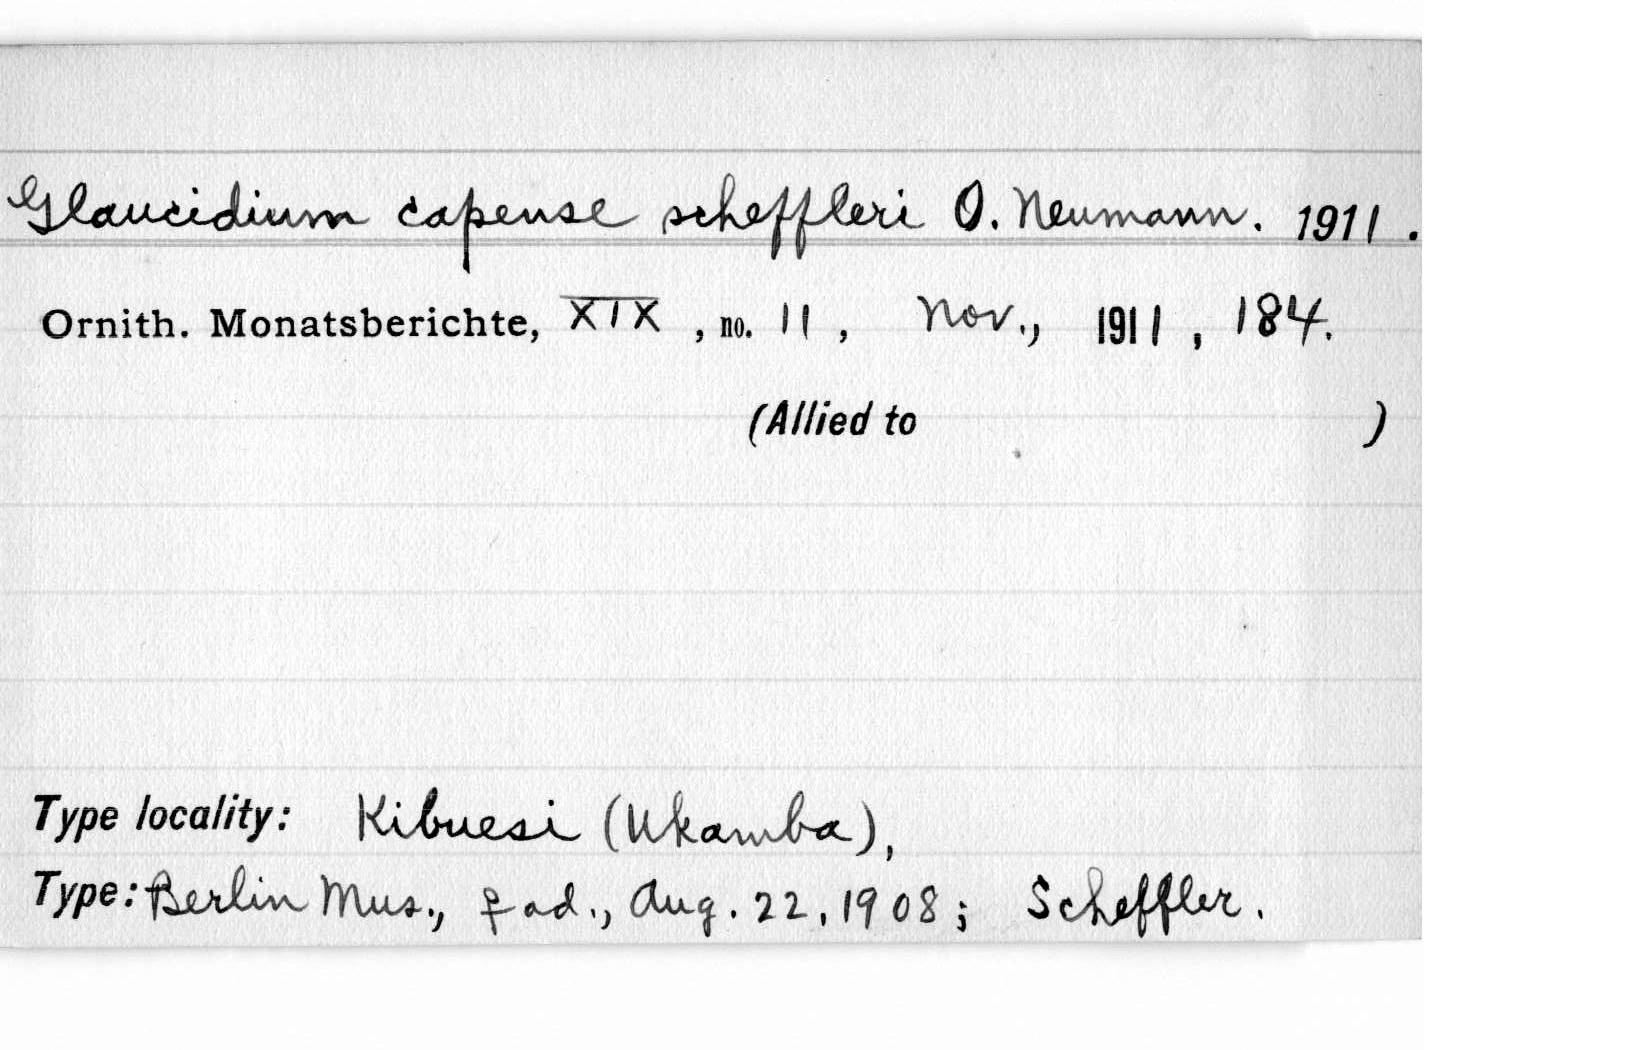 Glaucidium capense scheffleri O. Neumann. 1911.
Ornith. Monatsberichte, XIX, no. 11, Nov., 1911, 184.
(Allied to )
Type locality: Kibuesi (Ukamba),
Type: Berlin Mus., ♀ ad., Aug. 22, 1908; Scheffler.